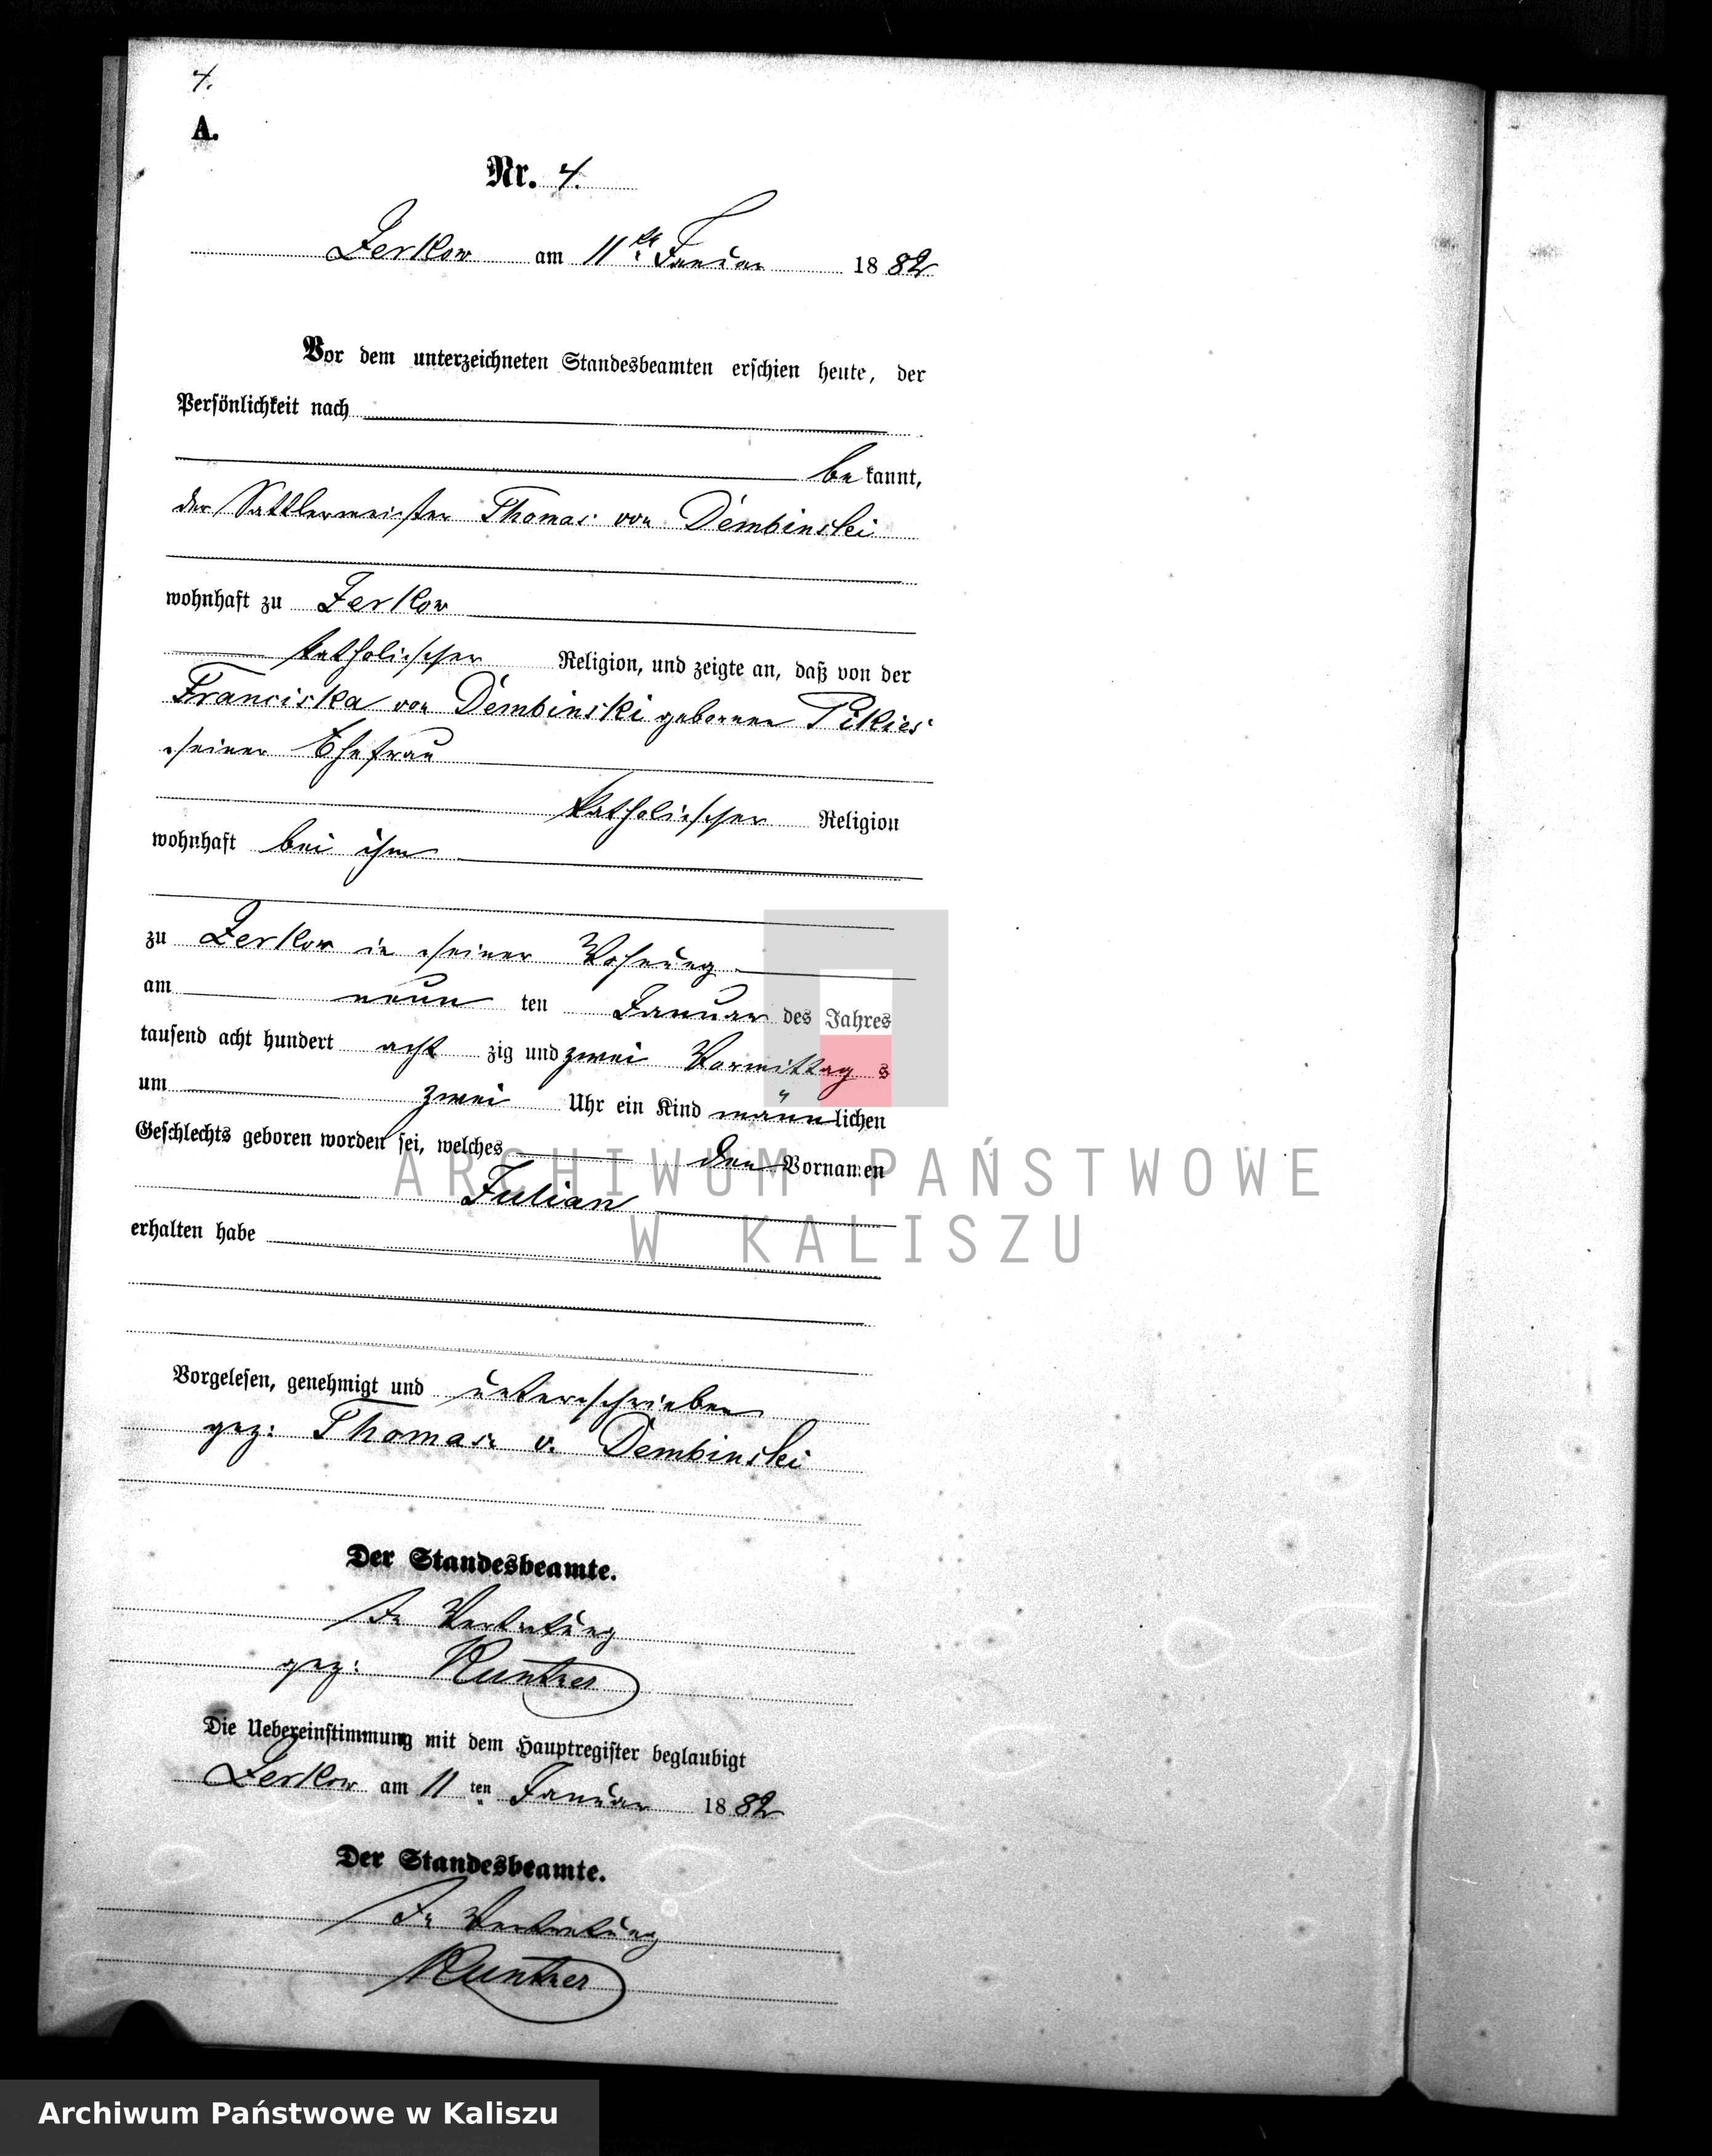 4.
A.
Nr. 4.
Zerkow am 11ten Januar 1882
Vor dem unterzeichneten Standesbeamten erschien heute, der
Persönlichkeit nach
bekannt,
der Sattlermeister Thomas von Dembinski
wohnhaft zu Zerkow
katholischer Religion, und zeigte an, daß von der
Franciska von Dembinski geborenen
seiner Ehefrau
katholischer Religion
wohnhaft bei ihm
zu Zerkow in seiner Wohnung
am neun ten Januar des Jahres
tausend acht hundert acht zig und zwei Vormittags
um zwei Uhr ein Kind männlichen
Geschlechts geboren worden sei, welches den Vornamen
Julian
erhalten habe
Vorgelesen, genehmigt und unterschrieben
gez: Thomas v. Dembinski
Der Standesbeamte.
In Vertretung
gez:
Die Uebereinstimmung mit dem Hauptregister beglaubigt
Zerkow am 11 ten Januar 1882
Der Standesbeamte.
In Vertretung
ARCHIWUM PAŃSTWOWE
W KALISZU
Archiwum Państwowe w Kaliszu